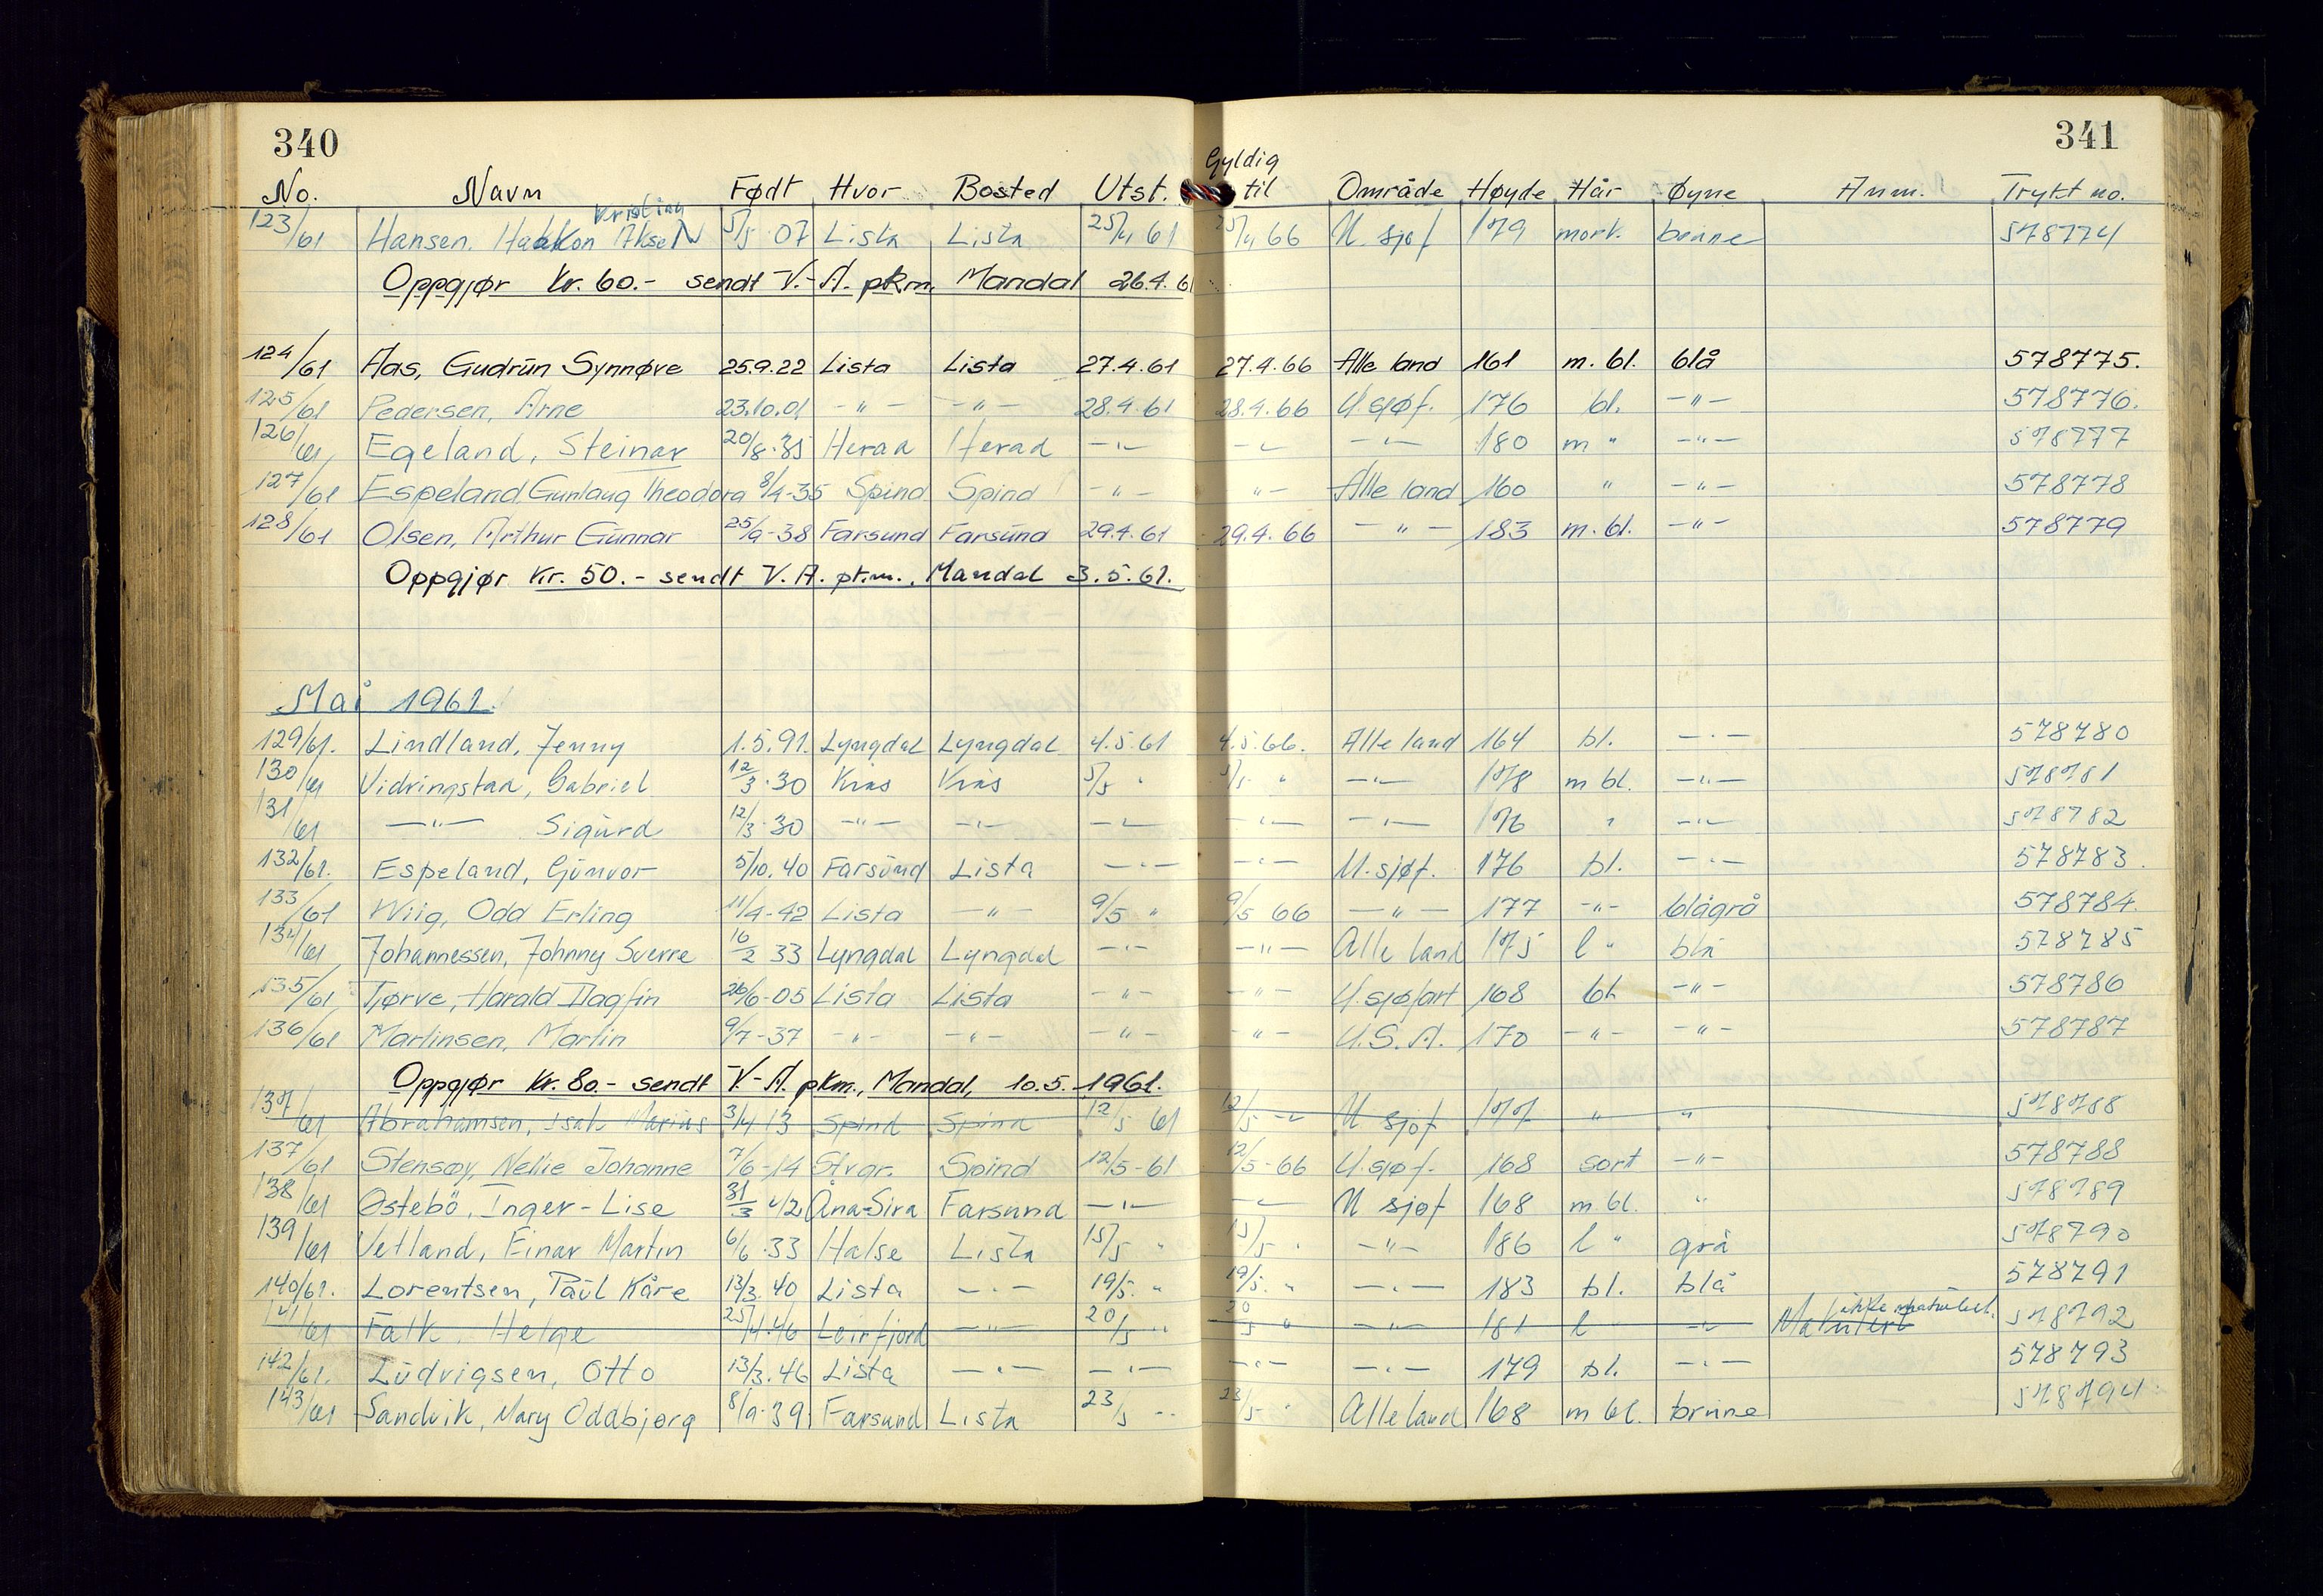 340 341
No. Navn Født Hvor Bosted Utst. Gyldig til Område Høyde Hår Øyne Anm. Trykt no.
Kristian
123/61 Hansen. Haakon Aksel 5/5 07 Lista Lista 25/4 61 25/4 66 U. sjøf 179 mørk. brune 578774
Oppgjør kr. 60.- sendt V.-A. pkm. Mandal 26.4.61
124/61 Aas, Gudrun Synnøve 25.9.22 Lista Lista 27.4.61 27.4.66 Alle land 161 m. bl. blå 578775.
125/61 Pedersen, Arne 23.10.01 -"- -"- 28.4.61 28.4.66 U.sjøf. 176 bl. -"- 578776.
126/61 Egeland, Steinar 20/8.35 Herad Herad -"- -"- -"- 180 m " -"- 578777
127/61 Espeland Gunlaug Theodora 8/4-35 Spind Spind -"- "- Alle land 160 " -"- 578778
128/61 Olsen, Arthur Gunnar 25/9-38 Farsund Farsund 29.4.61 29.4.66 -"- 183 m. bl. -"- 578779
Oppgjør kr. 50.- sendt V.A. pk.m., Mandal 3.5.61.
Mai 1961.
129/61. Lindland, Jenny 1.5.91. Lyngdal Lyngdal 4.5.61 4.5.66. Alle land 164 bl. -"- 578780
130/61 Vidringstad, Gabriel 12/3.30 Kvås Kvås 5/5 " 5/5 " -"- 178 m bl. -"- 578781
131/61 -"- Sigurd 12/3.30 -"- -"- -"- -"- -"- 176 " -"- 578782
132/61. Espeland, Gunvor 5/10.40 Farsund Lista -"- -"- U.sjøf. 176 bl. -"- 578783.
133/61 Wiig, Odd Erling 11/4-42 Lista -"- 9/5 " 9/5 66 -"- 177 -"- blågrå 578784.
134/61 Johannessen, Johnny Sverre 16/2 33 Lyngdal Lyngdal -"- -"- Alle land 175 l " blå 578785
135/61 Tjørve, Harald Dagfin 26/6-05 Lista Lista -"- -"- U.sjøfart 168 bl. -"- 578786
136/61 Martinsen, Martin 9/7-37 -"- -"- -"- -"- U.S.A. 170 -"- -"- 578787
Oppgjør kr. 80.- sendt V.-A. pkm., Mandal, 10.5.1961.
137/61 Abrahamsen, Isak Marius 3/4 13 Spind Spind 12/5 61 12/5 -"- U sjøf 177 " " 578788
137/61 Stensøy, Nelie Johanne 7/6-14 Stvgr. Spind 12/5-61 12/5-66 U.sjøf. 168 sort -"- 578788
138/61 Østebö, Inger-Lise 31/3 42 Åna-Sira Farsund -"- -"- U sjøf 168 m bl. " 578789
139/61 Vetland, Einar Martin 6/6.33 Halse Lista 15/5 " 15/5 " -"- 186 l " grå 578790
140/61. Lorentsen, Paul Kåre 13/3.40 Lista -"- 19/5. " 19/5. " -"- 183 bl. blå 578791
141/61 Falk, Helge 25/4.46 Leirfjord -"- 20/5 " 20/5 " -"- 181 l -"- Makulert ikke makulert. 578792
142/61. Ludvigsen, Otto 13/3.46 Lista -"- -"- -"- -"- 179 bl. -"- 578793
143/61 Sandvik, Mary Oddbjørg 8/9.39. Farsund Lista 23/5 " 23/5 " Alle land 168 m bl. brune 578794